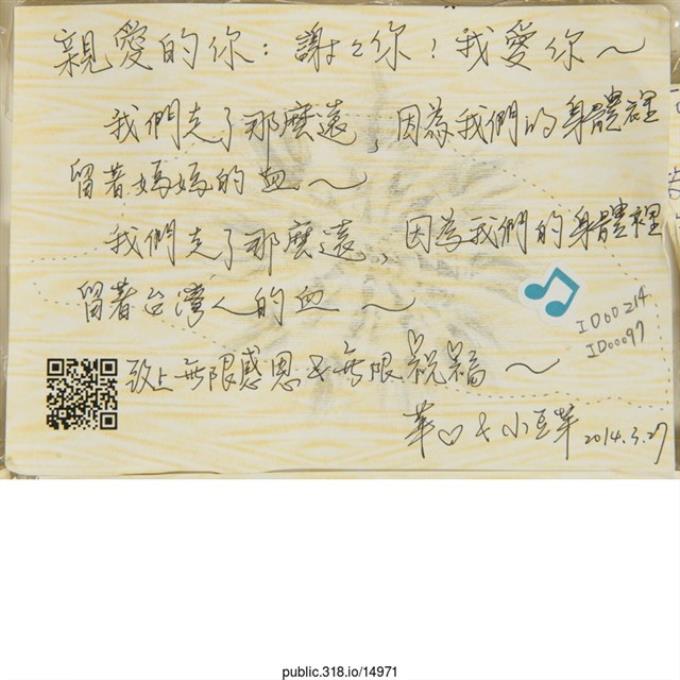 親愛的你：謝々你！我愛你～
我們走了那麼遠，因為我們的身體裡
留著媽媽的血～
我們走了那麼遠，因為我們的身體裡
留著台灣人的血～
ID00214
ID00097
致上無限感恩&無限祝福～
華♡&小豆芽 2014.3.27
public.318.io/14971